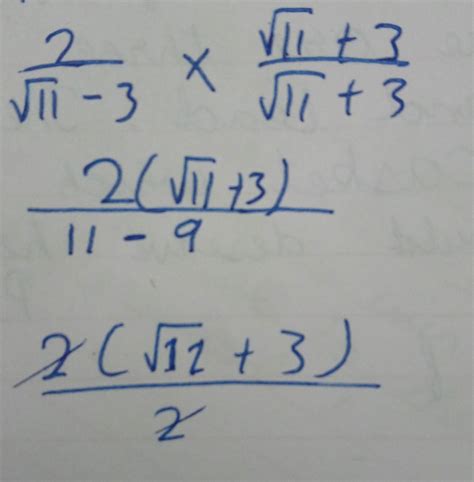 2/(√11 - 3) × (√11 + 3)/(√11 + 3)
2(√11+3)/(11 - 9)
2(√11 + 3)/2